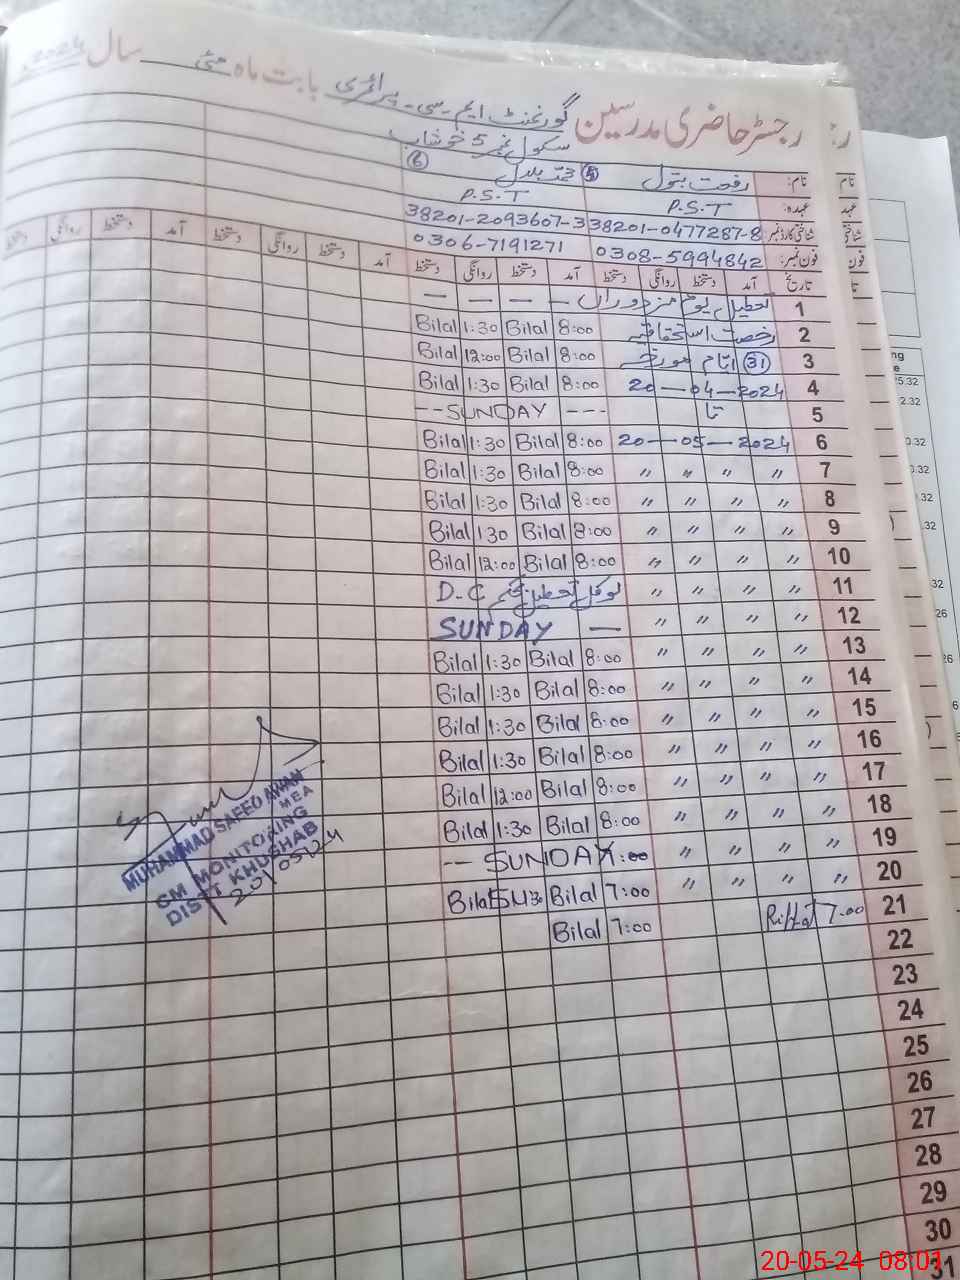 رجسٹر حاضری مدرسین گورنمنٹ ایم۔سی۔ پرائمری بابت ماہ مئی سال 2024
سکول نمبر 5 خوشاب
نام: رفعت بتول ⑤ محمد بلال ⑥
عہدہ: P.S.T P.S.T
شناختی کارڈ نمبر 38201-0477287-8 38201-2093607-3
فون نمبر: 0308-5994842 0306-7191271
تاریخ آمد دستخط روانگی دستخط آمد دستخط روانگی دستخط آمد دستخط روانگی دستخط آمد دستخط روانگی دستخط
1 تعطیل یوم مزدوراں — — — —
2 رخصت استحقاقیہ 8:00 Bilal 1:30 Bilal
3 (31) ایام مورخہ 8:00 Bilal 12:00 Bilal
4 20-04-2024 8:00 Bilal 1:30 Bilal
5 تا --SUNDAY ---
6 20-05-2024 8:00 Bilal 1:30 Bilal
7 〃 〃 〃 〃 8:00 Bilal 1:30 Bilal
8 〃 〃 〃 〃 8:00 Bilal 1:30 Bilal
9 〃 〃 〃 〃 8:00 Bilal 1:30 Bilal
10 〃 〃 〃 〃 8:00 Bilal 12:00 Bilal
11 〃 〃 〃 〃 لوکل تعطیل بحکم D.C
12 〃 〃 〃 〃 SUNDAY —
13 〃 〃 〃 〃 8:00 Bilal 1:30 Bilal
14 〃 〃 〃 〃 8:00 Bilal 1:30 Bilal
15 〃 〃 〃 〃 8:00 Bilal 1:30 Bilal
16 〃 〃 〃 〃 8:00 Bilal 1:30 Bilal
17 〃 〃 〃 〃 8:00 Bilal 12:00 Bilal
18 〃 〃 〃 〃 8:00 Bilal 1:30 Bilal
19 〃 〃 〃 〃 -- SUNDAY :00
20 〃 〃 〃 〃 7:00 Bilal Bilal
21 7:00 Riffat 7:00 Bilal
22
23
24
25
26
27
28
29
30
31
MUHAMMAD SAEED AWAN
MEA
CM MONITORING
DISTT KHUSHAB
20/05/24
20-05-24 08:01